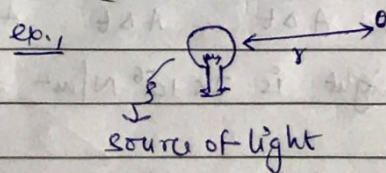 ex. 1
r
source of light